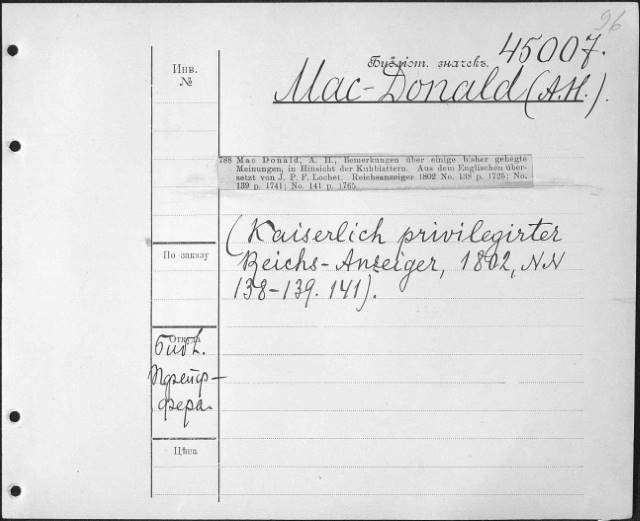 96
45007.
Библіот. значекъ.
Инв.
№
Mac-Donald (A.H.).
788 Mac Donald, A. H., Bemerkungen über einige bisher gehegte
Meinungen, in Hinsicht der Kuhblattern. Aus dem Englischen über-
setzt von J. P. F. Lochet. Reichsanzeiger 1802 No. 138 p. 1725; No.
139 p. 1741; No. 141 p. 1765.
(Kaiserlich privilegirter
Reichs-Anzeiger, 1802, NN
138-139. 141).
По заказу
Откуда
Библ.
Пфейф-
фера.
Цѣна